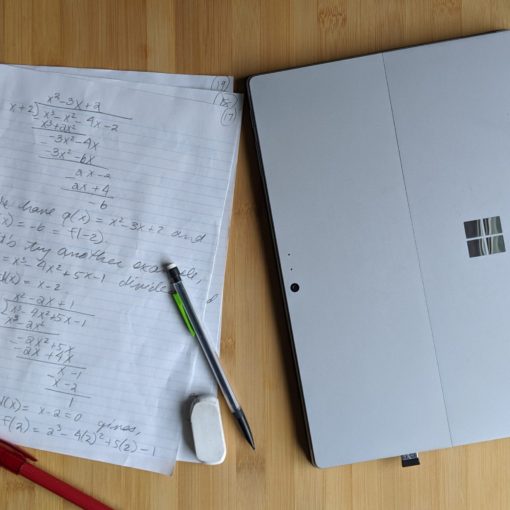 19
18
17
x²-3x+2
x+2 x³-x²-4x-2
x³+2x²
-3x²-4x
-3x²-6x
2x-2
2x+4
-6
We have q(x) = x²-3x+2 and
(x) = -6 = f(-2).
try another example,
= x³-4x²+5x-1 divided
d(x) = x-2
x²-2x+1
x³-4x²+5x-1
x³-2x²
-2x²+5x
-2x+4x
x-1
x-2
1
d(x) = x-2=0 gives,
f(2) = 2³-4(2)²+5(2)-1